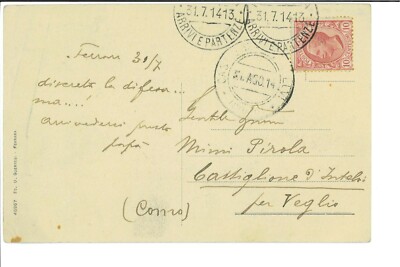 31.7.14 13
ARRIVI E PARTENZE
31.7.14 13
ARRIVI E PARTENZE
Ferrara 31/7
discreta la difesa
ma....!
arrivederci presto
papà
AGO. 14
Mimi Pirola
Castiglione d'Intelvi
per Veglio
(Como)